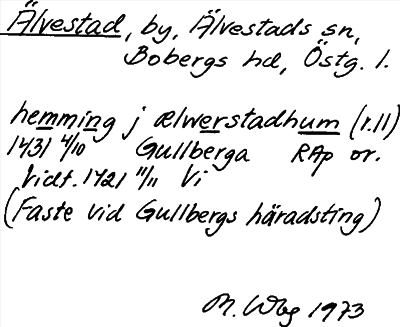 Älvestad, by, Älvestads sn,
Bobergs hd, Östg. l.
hemming j ælwerstadhum (r.11)
1431 4/10 Gullberga RAp or.
Vidt. 1421 11/11 Vi
(Faste vid Gullbergs häradsting)
M. Wbg 1973